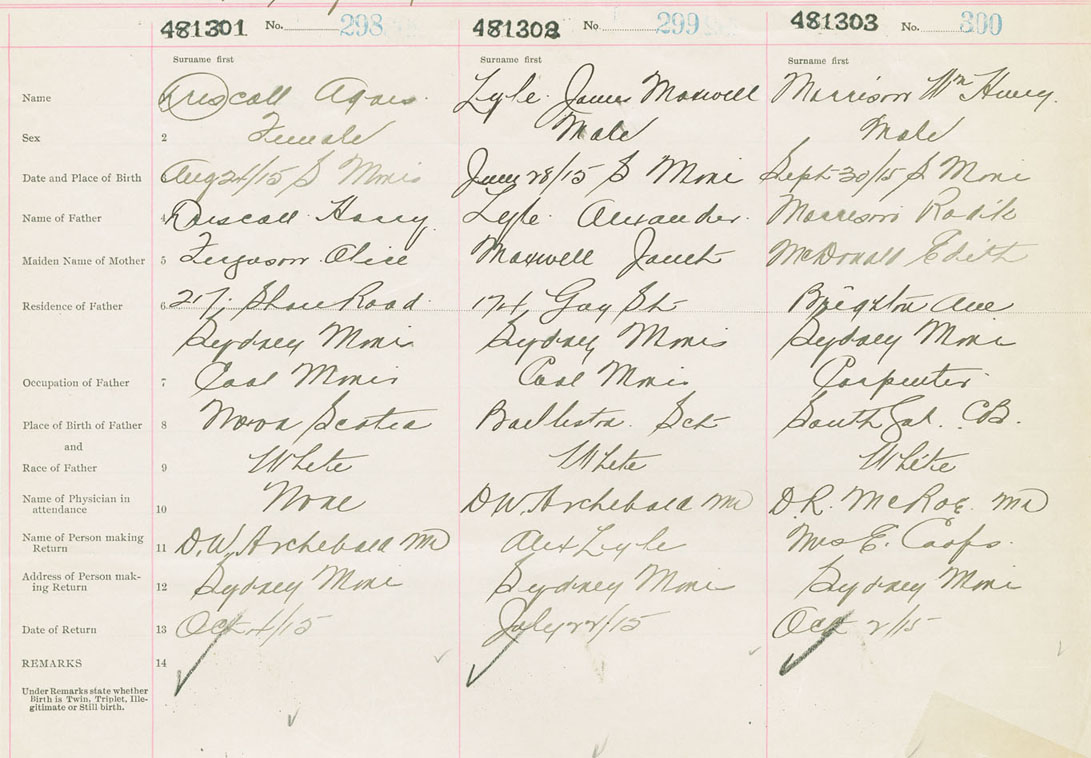 481301 No. 298 481302 No. 299 481303 No. 300
Surname first Surname first Surname first
Name Driscoll Agnes. Lyle. James Maxwell Morrison Wm Henry.
Sex 2 Female Male Male
Date and Place of Birth Aug 21/15 S Mines June 28/15 S Mines Sept 30/15 S Mines
Name of Father 4 Driscoll Harry Lyle. Alexander. Morrison
Maiden Name of Mother 5 Ferguson Alice Maxwell Janet McDonald Edith
Residence of Father 6 Shore Road. 174 Gay St Brighton Ave
Sydney Mines Sydney Mines Sydney Mines
Occupation of Father 7 Coal Miner Coal Miner Carpenter
Place of Birth of Father 8 Nova Scotia Sct South C.B.
and
Race of Father 9 White White White
Name of Physician in
attendance 10 None D.W. Archebald MD D.R. McRae. MD
Name of Person making
Return 11 D.W. Archebald MD Alex Lyle Mrs E.
Address of Person mak-
ing Return 12 Sydney Mines Sydney Mines Sydney Mines
Date of Return 13 Oct 4/15 July 22/15 Oct 2/15
REMARKS 14
Under Remarks state whether
Birth is Twin, Triplet, Ille-
gitimate or Still birth.